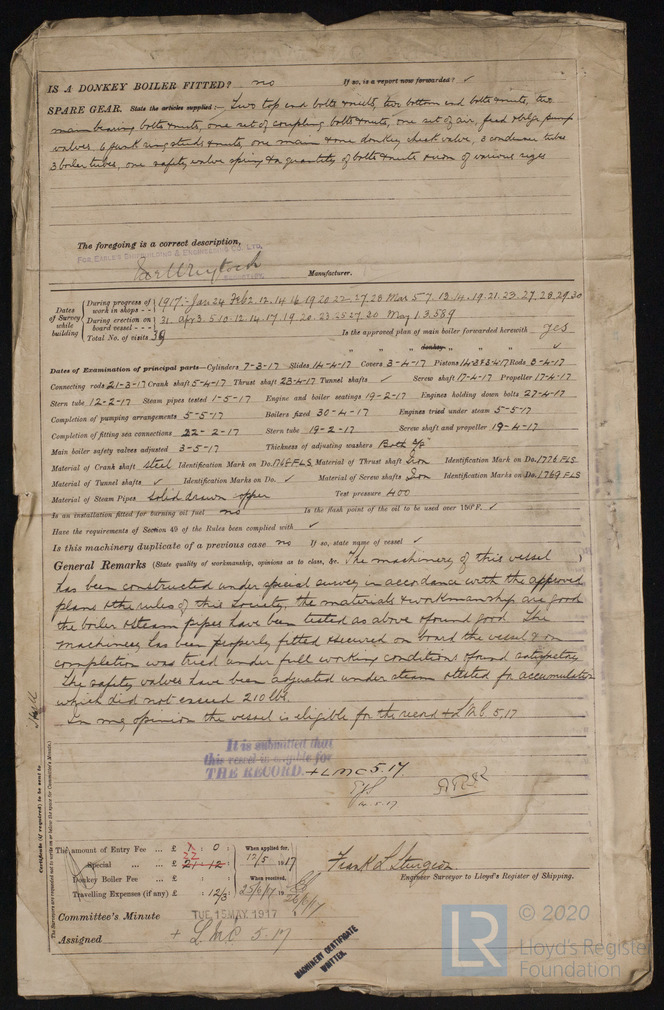 IS A DONKEY BOILER FITTED? no If so, is a report now forwarded? ✓
SPARE GEAR. State the articles supplied:— Two top end bolts & nuts, two bottom end bolts & nuts, two
main bearing bolts & nuts, one set of coupling bolts & nuts, one set of air, feed & bilge pump
valves, 6 junk ring studs & nuts, one main & one donkey check valve, 3 condenser tubes
3 boiler tubes, one safety valve spring & a quantity of bolts & nuts & iron of various sizes
The foregoing is a correct description,
FOR EARLE'S SHIPBUILDING & ENGINEERING CO. LTD.
SECRETARY. Manufacturer.
Dates of Survey while building
During progress of work in shops - - 1917:- Jan 24 Feb 2. 12. 14. 16. 19. 20. 22. 27. 28 Mar 5. 7. 13. 14. 19. 21. 23. 27. 28. 29. 30
During erection on board vessel - - - 31 Apr 3. 5. 10. 12. 14. 17. 19. 20. 23. 25. 27. 30 May 1. 3. 5. 8. 9
Total No. of visits 39 Is the approved plan of main boiler forwarded herewith yes
" " " donkey " " " ✓
Dates of Examination of principal parts—Cylinders 7-3-17 Slides 14-4-17 Covers 3-4-17 Pistons 14-3 & 3-4-17 Rods 3-4-17
Connecting rods 21-3-17 Crank shaft 5-4-17 Thrust shaft 23-4-17 Tunnel shafts ✓ Screw shaft 17-4-17 Propeller 17-4-17
Stern tube 12-2-17 Steam pipes tested 1-5-17 Engine and boiler seatings 19-2-17 Engines holding down bolts 27-4-17
Completion of pumping arrangements 5-5-17 Boilers fixed 30-4-17 Engines tried under steam 5-5-17
Completion of fitting sea connections 22-2-17 Stern tube 19-2-17 Screw shaft and propeller 19-4-17
Main boiler safety valves adjusted 3-5-17 Thickness of adjusting washers Both
Material of Crank shaft steel Identification Mark on Do. 1768 FLS Material of Thrust shaft Iron Identification Mark on Do. 1776 FLS
Material of Tunnel shafts ✓ Identification Marks on Do. ✓ Material of Screw shafts Iron Identification Marks on Do. 1769 FLS
Material of Steam Pipes solid drawn copper Test pressure 400
Is an installation fitted for burning oil fuel no Is the flash point of the oil to be used over 150°F. ✓
Have the requirements of Section 49 of the Rules been complied with ✓
Is this machinery duplicate of a previous case no If so, state name of vessel ✓
General Remarks (State quality of workmanship, opinions as to class, &c. The machinery of this vessel
has been constructed under special survey in accordance with the approved
plans & the rules of this Society, the materials & workmanship are good
the boiler & steam pipes have been tested as above & found good. The
machinery has been properly fitted & secured on board the vessel & on
completion was tried under full working conditions & found satisfactory
The safety valves have been adjusted under steam & tested for accumulation
which did not exceed 210 lbs.
In my opinion the vessel is eligible for the record + L.M.C. 5.17
It is submitted that
this vessel is eligible for
THE RECORD. + LMC 5.17
Certificate (if required) to be sent to
The Surveyors are requested not to write on or below the space for Committee's Minute.
Hull
The amount of Entry Fee ... £ : 0 : When applied for,
Special ... ... £ 21-12 : 12/5 1917
Donkey Boiler Fee ... £ : : When received,
Travelling Expenses (if any) £ : 12/3 :
Frank L. Sturgeon
Engineer Surveyor to Lloyd's Register of Shipping.
Committee's Minute TUE. 15 MAY. 1917
Assigned + L.M.C 5.17
MACHINERY CERTIFICATE
WRITTEN.
LR © 2020
Lloyd's Register
Foundation